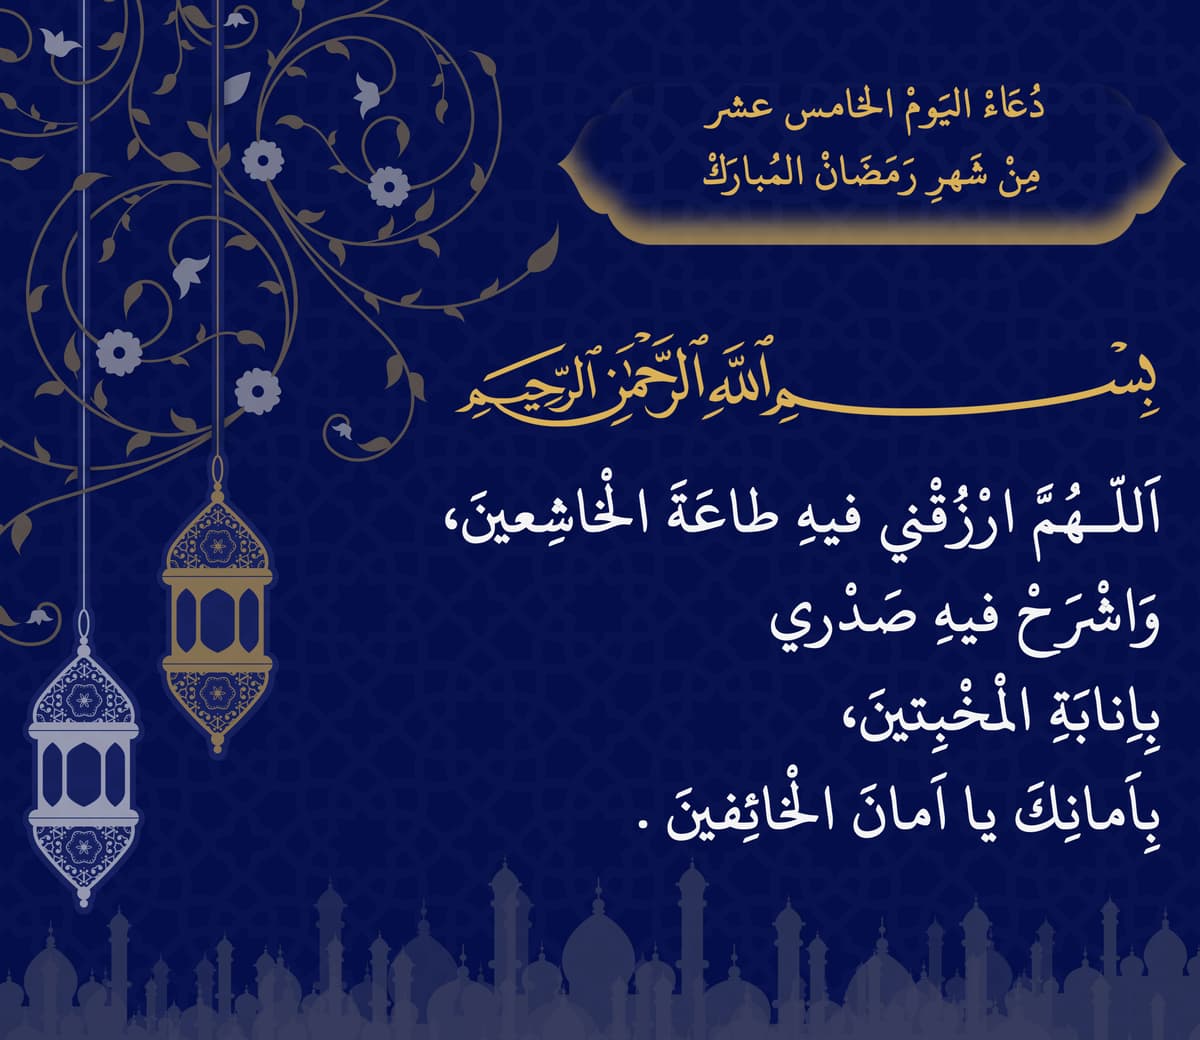 دُعَاءْ اليَومْ الخامس عشر
مِنْ شَهرِ رَمَضَانْ المُبارَكْ
بِسْمِ اللَّهِ الرَّحْمَٰنِ الرَّحِيمِ
اَللّـهُمَّ ارْزُقْني فيهِ طاعَةَ الْخاشِعينَ،
وَاشْرَحْ فيهِ صَدْري
بِاِنابَةِ الْمُخْبِتينَ،
بِاَمانِكَ يا اَمانَ الْخائِفينَ .